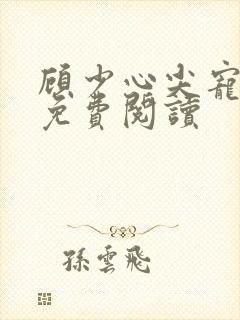 顾少心尖宠
免費閱讀
孫雲飛